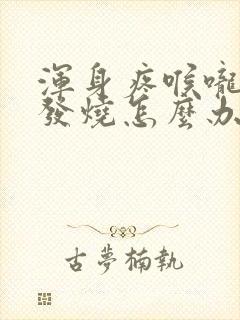 渾身疼喉嚨
發燒怎麼办
古夢楠執